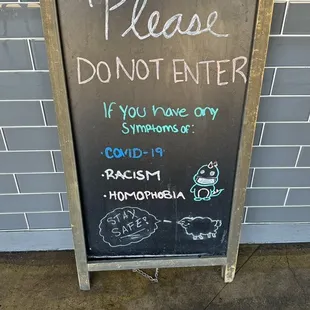 Please
DO NOT ENTER
If you have any
Symptoms of:
• COVID-19
• RACISM
• HOMOPHOBIA
STAY
SAFE!